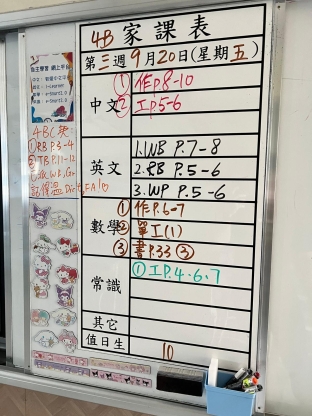 4B 家課表
第三週9月20日(星期五)
中文
① 作P.8-10
② IP.5-6
英文
1. WB P.7-8
2. RB P.5-6
3. WP P.5-6
數學
① 作P.6-7
② 單工(1)
③ 書P.33 ③
常識
① IP.4.6.7
其它
值日生
10
自主學習 網上平台
4BC英
① RB P.3-4
② TB P.11-12